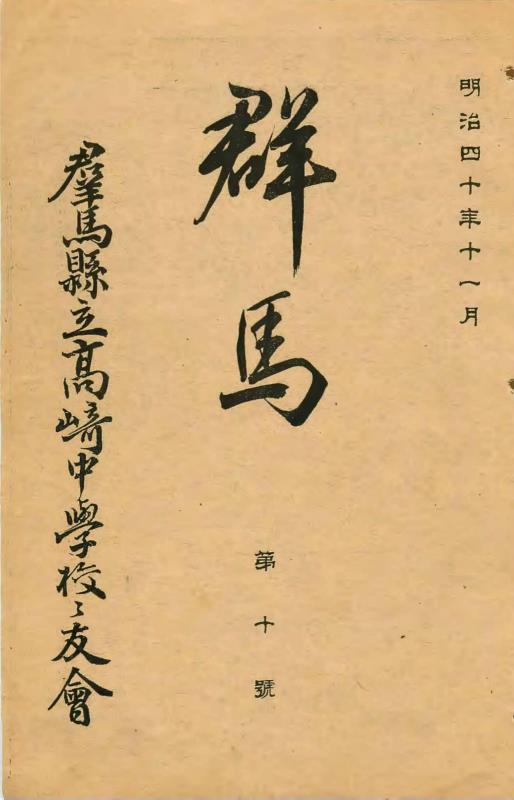 明治四十年十一月
群馬
第十號
羣馬縣立高﨑中學校〻友會